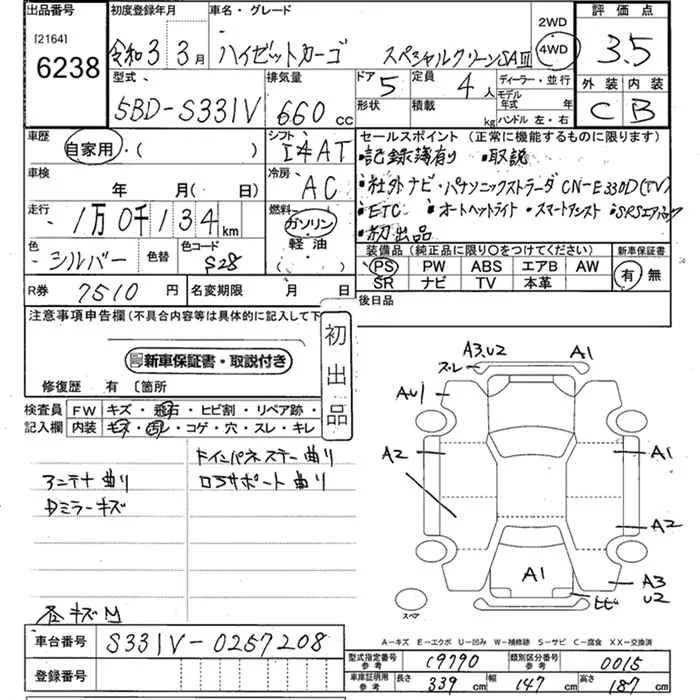 出品番号 初度登録年月 車名・グレード 2WD 評価点
[2164]
6238 令和3年3月 ハイゼットカーゴ スペシャルクリーンSAⅢ 4WD 3.5
型式 排気量 ドア 定員 ディーラー・並行 外装 内装
5BD-S331V 660cc 5 4人 モデル年式 年 C B
形状 積載 kg ハンドル 左・右
車歴 シフト セールスポイント (正常に機能するものに限ります)
自家用・( ) I4AT ・記録簿有り ・取説
車検 冷房 ・社外ナビ・パナソニックストラーダ CN-E330D(TV)
年 月( 日) AC ・ETC ・オートヘッドライト ・スマートアシスト ・SRSエアバッグ
走行 燃料 ・初出品
1万0千134km ガソリン
色 色替 色コード 軽油 装備品 (純正品に限り○をつけてください) 新車保証書
シルバー S28 ( ) PS PW ABS エアB AW 有 無
SR ナビ TV 本革
R券 7510円 名変期限 月 日 後日品
注意事項申告欄(不具合内容等は具体的に記入して下
初出品
新車保証書・取説付き
修復歴 有 〔箇所
検査員記入欄 FW キズ・飛石・ヒビ割・リペア跡・
内装 キズ・汚レ・コゲ・穴・スレ・キレ
ドインパネステー曲り
アンテナ曲り ロアサポート曲り
Dミラーキズ
各キズM
A3.U2 A1
スレ
AU1
A2 A1
A2
A1 A3
U2
ヒビ
スペア
A=キズ E=エクボ U=凹み W=補修跡 S=サビ C=腐食 XX=交換済
車台番号 S331V-0257208
登録番号
型式指定番号 参考 19790 類別区分番号 参考 0015
車庫証明用 参考 長さ 339cm 幅 147cm 高さ 187cm